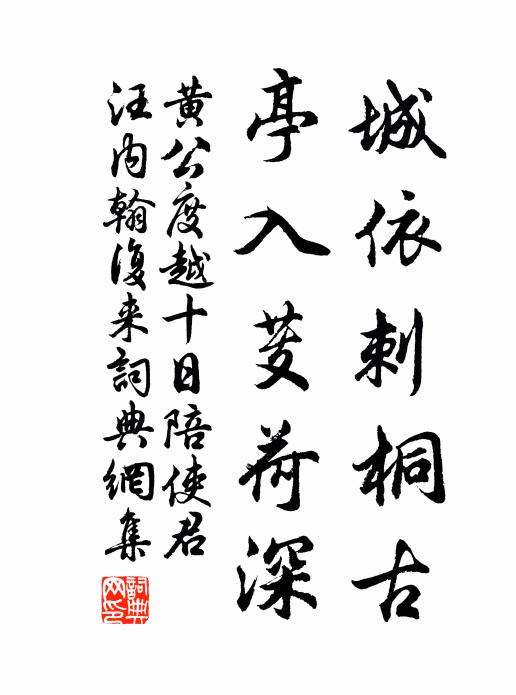 城依刺桐古
亭入芰荷深
黄公度越十日陪使君
汪内翰復来詞典網集
詞典网印